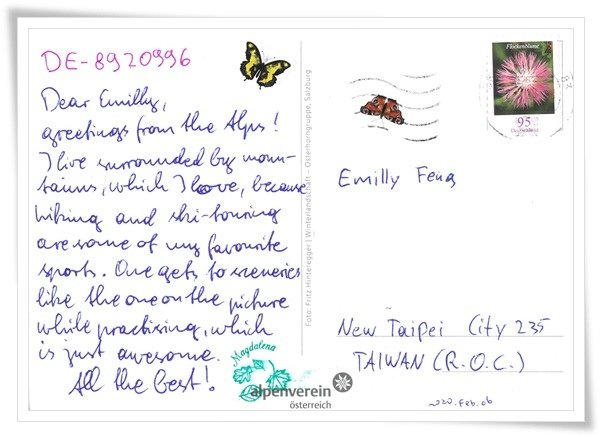 DE-8920996
Dear Emilly,
greetings from the Alps!
I live surrounded by moun-
tains, which I love, because
hiking and ski-touring
are some of my favourite
sports. One gets to sceneries
like the one on the picture
while practising, which
is just awesome.
All the best!
Magdalena
alpenverein
österreich
Foto: Fritz Hinteregger | Winterlandschaft - Osterhorngruppe, Salzburg
Flockenblume
95
Deutschland
Emilly Feng
New Taipei City 235
TAIWAN (R.O.C.)
2020.Feb.06